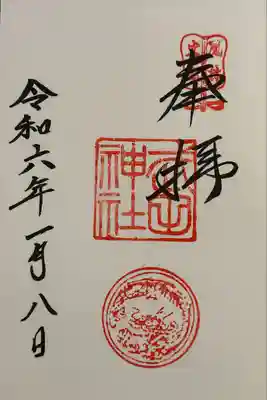 奉拝
神社
令和六年一月八日